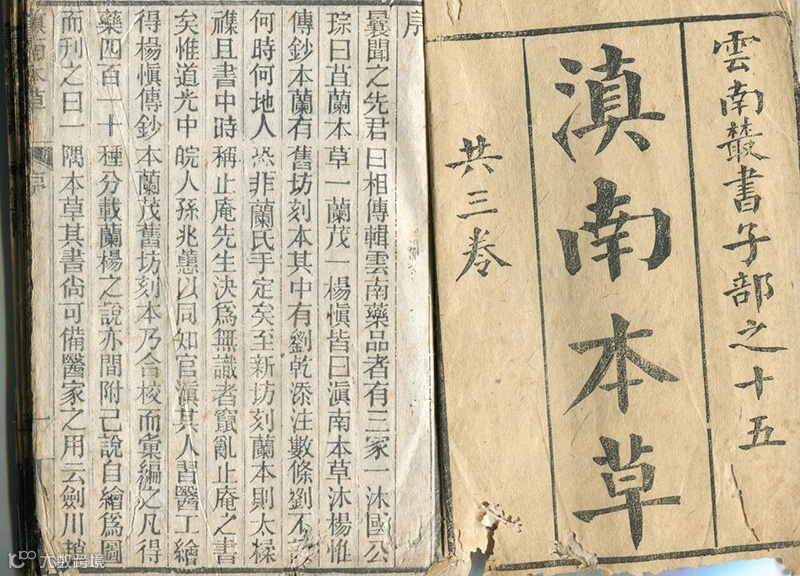 雲南叢書子部之十五
滇南本草
共三卷
序
曩聞之先君曰相傳輯雲南藥品者有三家一沐國公
琮曰苴蘭本草一蘭茂一楊慎皆曰滇南本草沐楊惟
傳鈔本蘭有舊坊刻本其中有劉乾添注數條劉不
何時何地人恐非蘭氏手定矣至新坊刻蘭本則太
襍且書中時稱止庵先生決為無識者竄亂止庵之書
矣惟道光中皖人孫兆蕙以同知官滇其人習醫工繪
得楊慎傳鈔本蘭茂舊坊刻本乃合校而彙編之凡得
藥四百一十種分載蘭楊之說亦間附己說自繪為圖
而刊之曰一隅本草其書尙可備醫家之用云劍川趙
滇南本草 序 一
大數跨境